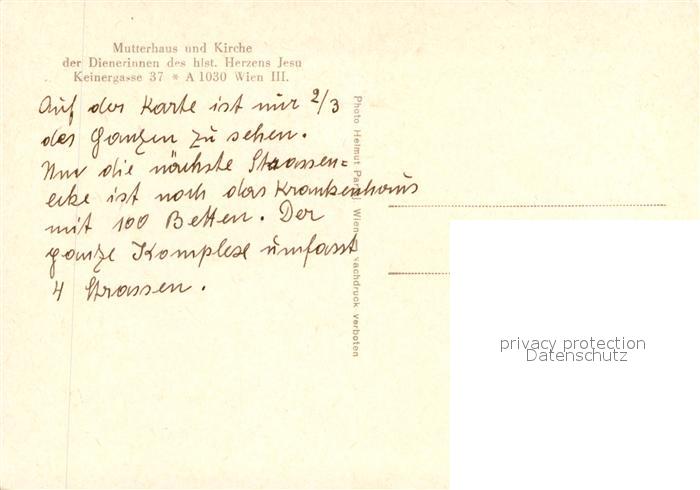 Mutterhaus und Kirche
der Dienerinnen des hlst. Herzens Jesu
Keinergasse 37 * A 1030 Wien III.
Auf der Karte ist nur 2/3
des Ganzen zu sehen.
Um die nächste Straassen=
ecke ist noch das Krankenhaus
mit 100 Betten. Der
ganze Komplexe umfasst
4 Strassen.
Photo Helmut Wien Nachdruck verboten
privacy protection
Datenschutz